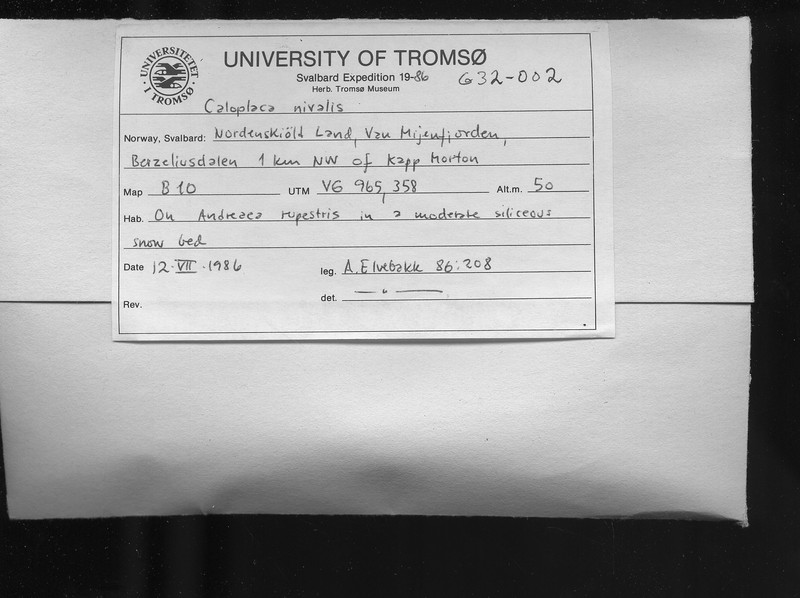 UNIVERSITETET I TROMSØ
UNIVERSITY OF TROMSØ
Svalbard Expedition 19-86 G32-002
Herb. Tromsø Museum
Caloplaca nivalis
Norway, Svalbard: Nordenskiöld Land, Van Mijenfjorden,
Berzeliusdalen 1 km NW of Kapp Morton
Map B10 UTM VG 965, 358 Alt.m. 50
Hab. On Andreaea rupestris in a moderate siliceous
snow bed
Date 12.VII.1986 leg. A. Elvebakk 86:208
Rev. det. —"—